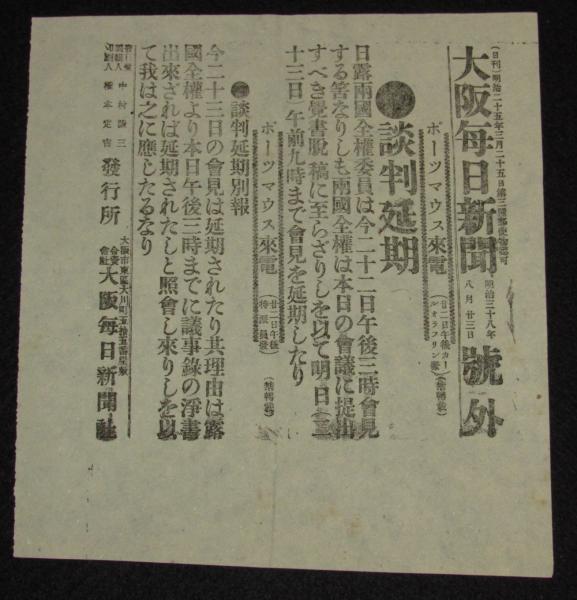 (日刊)明治二十五年三月二十五日第三種郵便物認可
大阪毎日新聞
明治三十八年
八月廿三日
號外
●談判延期
ポーツマウス來電
(廿二日午後カー
ルオラフリン發)
(禁轉載)
日露兩國全權委員は今二十二日午後三時會見
する筈なりしも兩國全權は本日の會議に提出
すべき覺書脫稿に至らざりしを以て明日(二
十三日)午前九時まで會見を延期したり
ポーツマウス來電
(廿二日午後
特派員發)
(禁轉載)
●談判延期別報
今二十三日の會見は延期されたり其理由は露
國全權より本日午後三時までに議事錄の淨書
出來ざれば延期されたしと照會し來りしを以
て我は之に應じたるなり
大阪市東區大川町五拾五番屋敷
合資
會社
大阪每日新聞社
發行所